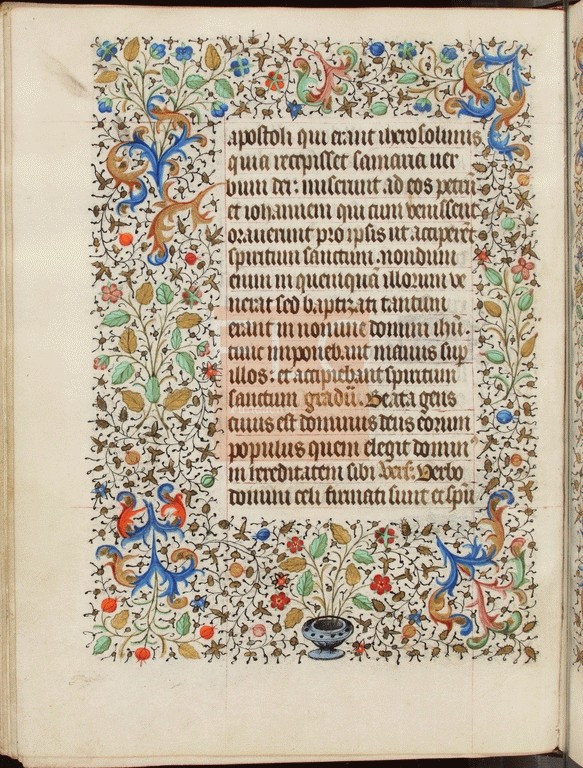 apostoli qui erant iherosolimis
quia recepisset samaria uer
bum dei: miserunt ad eos petrū
et iohannem qui cum uenissent
orauerunt pro ipsis ut acciperēt
spiritum sanctum. nondum
enim in quemquā illorum ue
nerat sed baptizati tantum
erant in nomine domini ihū.
tunc imponebant manus sup
illos: et accipiebant spiritum
sanctum gradū. Beata gens
cuius est dominus deus eorum
populus quem elegit domin9
in hereditatem sibi vers. Verbo
domini celi firmati sunt et spū